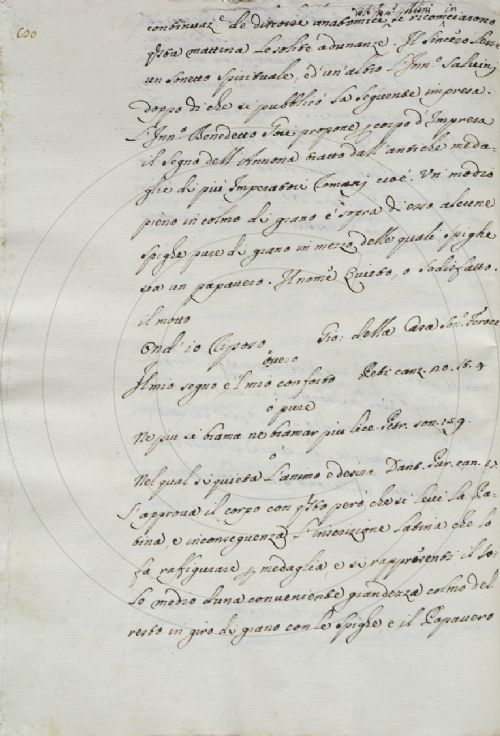 600
continuaz.e le ditorne anabomice si ricominciarono
q.sta mattina le solite adunanze. Il Sincero lesse
un sonetto spirituale, ed un'altro l'Inn.o Salvini
doppo di che si pubblicò la seguente impresa.
L'Inn.o Benedetto Gori propone p corpo d'Impresa
il segno dell'Annona tratto dall'antiche meda-
glie di più Imperatori Romanj cioè. Un modio
pieno in colmo di grano e sopra di esso alcune
spighe pure di grano in mezzo delle quali spighe
sia un papavero. Il nome Quieto, o sodisfatto.
il motto
Ond' io Riposo Gio: della Casa Son.o
óvero
Il mio segno e'l mio conforto Petr: canz. 20. st. 4
ó pure
Ne più si brama ne bramar più lice Petr. son. 129.
ó
Nel qual si quieta l'animo e desira Dant. Pur. can. 17
S'approva il corpo con q.sto però che si levi la Ra-
bina, e inconseguenza l'inscrizione latina che lo
fa raffigurare p medaglia, e si rappresenti il so-
lo modio d'una conveniente grandezza colmo del
resto in giro di grano con le spighe e il Papavero